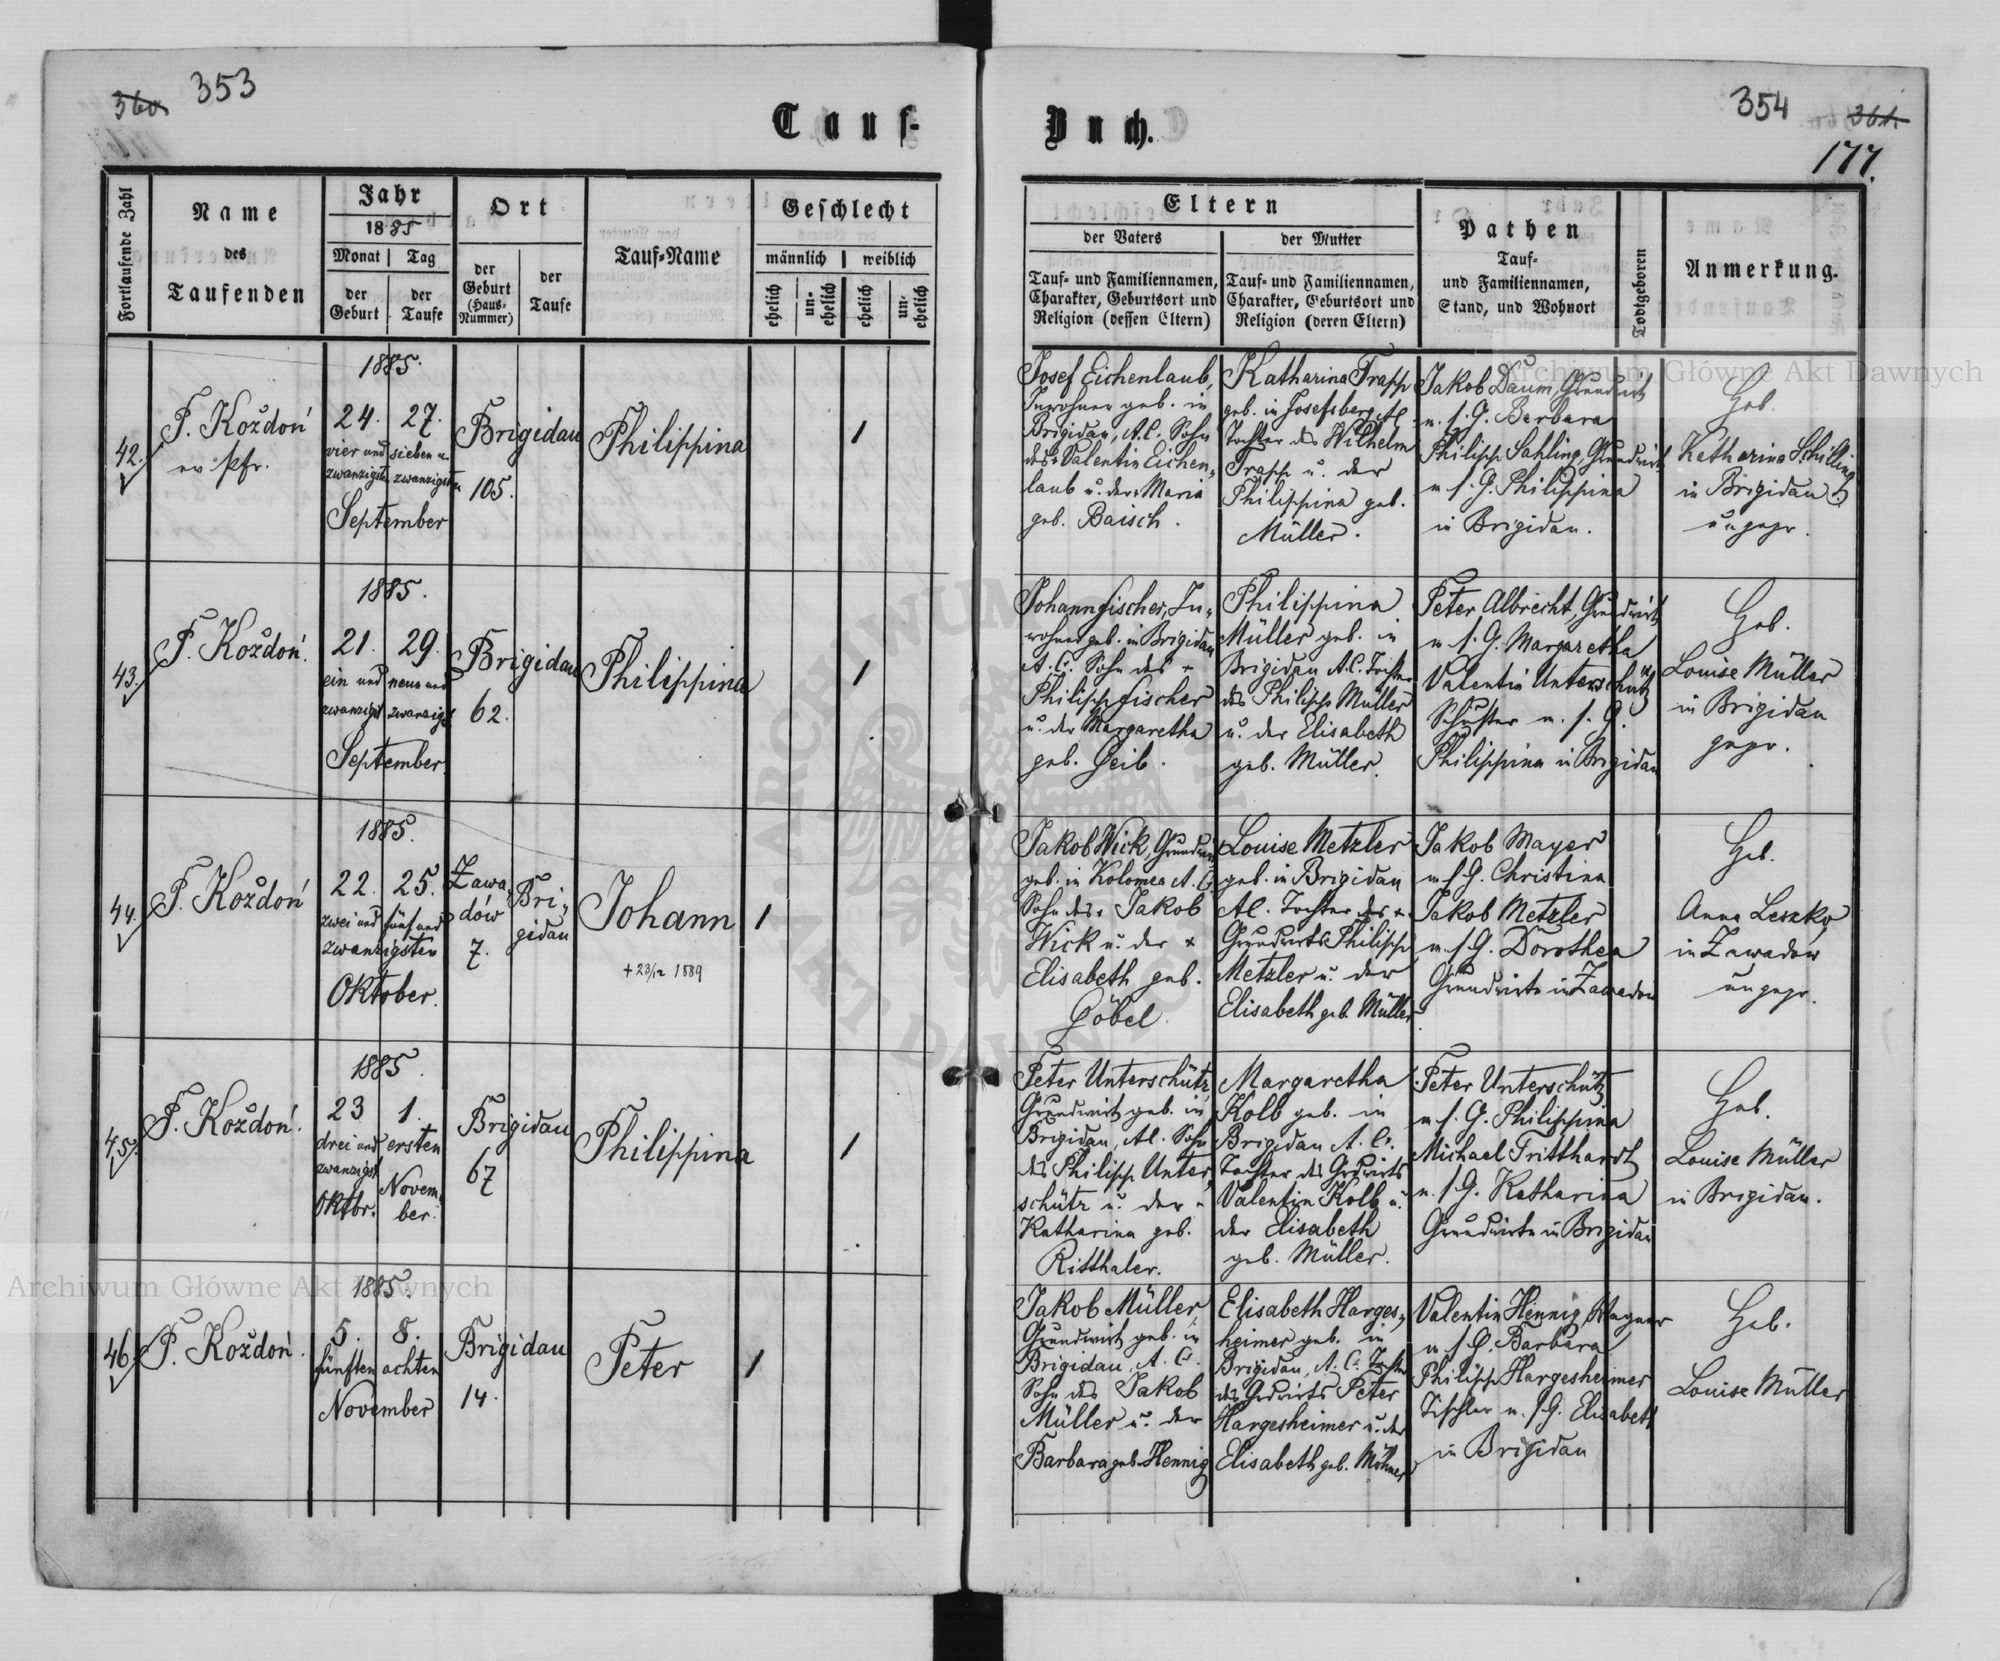 360. 353
Tauf-
Fortlaufende Zahl
Name
des
Taufenden
Jahr
1885
Monat
Tag
der
Geburt
der
Taufe
Ort
der
Geburt
(Haus-
Nummer)
der
Taufe
Tauf-Name
Geschlecht
männlich
weiblich
ehelich
un-
ehelich
ehelich
un-
ehelich
42.
F. Kożdoń
ev. Pfr.
1885.
24. 27.
vier und sieben u.
zwanzigsten zwanzigsten
September
Brigidau
105.
Philippina
1
43.
F. Kożdoń.
1885.
21. 29.
ein und neun und
zwanzigst zwanzigst
September
Brigidau
62.
Philippina
1
44.
F. Kożdoń
1885.
22. 25.
zwei und fünf und
zwanzigsten
Oktober.
Zawa-
dów
7.
Bri-
gidau
Johann
+ 23/12 1889
1
45.
F. Kożdoń.
1885.
23 1.
drei und ersten
zwanzigst
Oktbr.
Novem-
ber.
Brigidau
67
Philippina
1
46.
F. Kożdoń.
1885.
5. 8.
fünften achten
November
Brigidau
14.
Peter
1
Buch.
354 361.
177.
Eltern
der Vaters
Tauf- und Familiennamen,
Charakter, Geburtsort und
Religion (dessen Eltern)
der Mutter
Tauf- und Familiennamen,
Charakter, Geburtsort und
Religion (deren Eltern)
Pathen
Tauf-
und Familiennamen,
Stand, und Wohnort
Todtgeboren
Anmerkung.
Josef Eichenlaub,
Inwohner geb. in
Brigidau, A.C. Sohn
des + Valentin Eichen-
laub u. der + Maria
geb. Baisch.
Katharina Trapp
geb. in Josefsberg AC
Tochter des Wilhelm
Trapp u. der
Philippina geb.
Müller.
Jakob Daum, Grundwirt
u. s. G. Barbara
Philipp Sahling, Grundwirt
u. s. G. Philippina
in Brigidau.
Heb.
Katharina Schilling
in Brigidau
ungepr.
Johann Fischer, In-
wohner geb. in Brigidau
A.C. Sohn des +
Philipp Fischer
u. der Margaretha
geb. Geib.
Philippina
Müller geb. in
Brigidau A.C. Tochter
des Philipp Müller
u. der Elisabeth
geb. Müller.
Peter Albrecht, Grundwirt
u. s. G. Margaretha
Valentin Unterschütz
Schuster u. s. G.
Philippina in Brigidau
Heb.
Louise Müller
in Brigidau
gepr.
Jakob Wick, Grundwirt
geb. in Kolomea A.C.
Sohn des + Jakob
Wick u. der +
Elisabeth geb.
Göbel.
Louise Metzler
geb. in Brigidau
AC. Tochter des +
Grundwirts Philipp
Metzler u. der
Elisabeth geb. Müller
Jakob Mayer
u. s. G. Christina
Jakob Metzler
u. s. G. Dorothea
Grundwirte in Zawadow
Heb.
Anna Leszko
in Zawadow
ungepr.
Peter Unterschütz
Grundwirt geb. in
Brigidau, AC. Sohn
des Philipp Unter-
schütz u. der
Katharina geb.
Ritthaler.
Margaretha
Kolb geb. in
Brigidau A.C.
Tochter des Grdwirts
Valentin Kolb u.
der Elisabeth
geb. Müller.
Peter Unterschütz
u. s. G. Philippina
Michael Tritthardt
u. s. G. Katharina
Grundwirte in Brigidau
Heb.
Louise Müller
in Brigidau.
Jakob Müller,
Grundwirt geb. in
Brigidau, A.C.
Sohn des Jakob
Müller u. der
Barbara geb. Hennig
Elisabeth Harges-
heimer geb. in
Brigidau, A.C. Tochter
des Grdwirts Peter
Hargesheimer u. der
Elisabeth geb. Möhner
Valentin Hennig, Wagner
u. s. G. Barbara
Philipp Hargesheimer
Tischler u. s. G. Elisabeth
in Brigidau
Heb.
Louise Müller
Archiwum Główne Akt Dawnych
Archiwum Główne Akt Dawnych